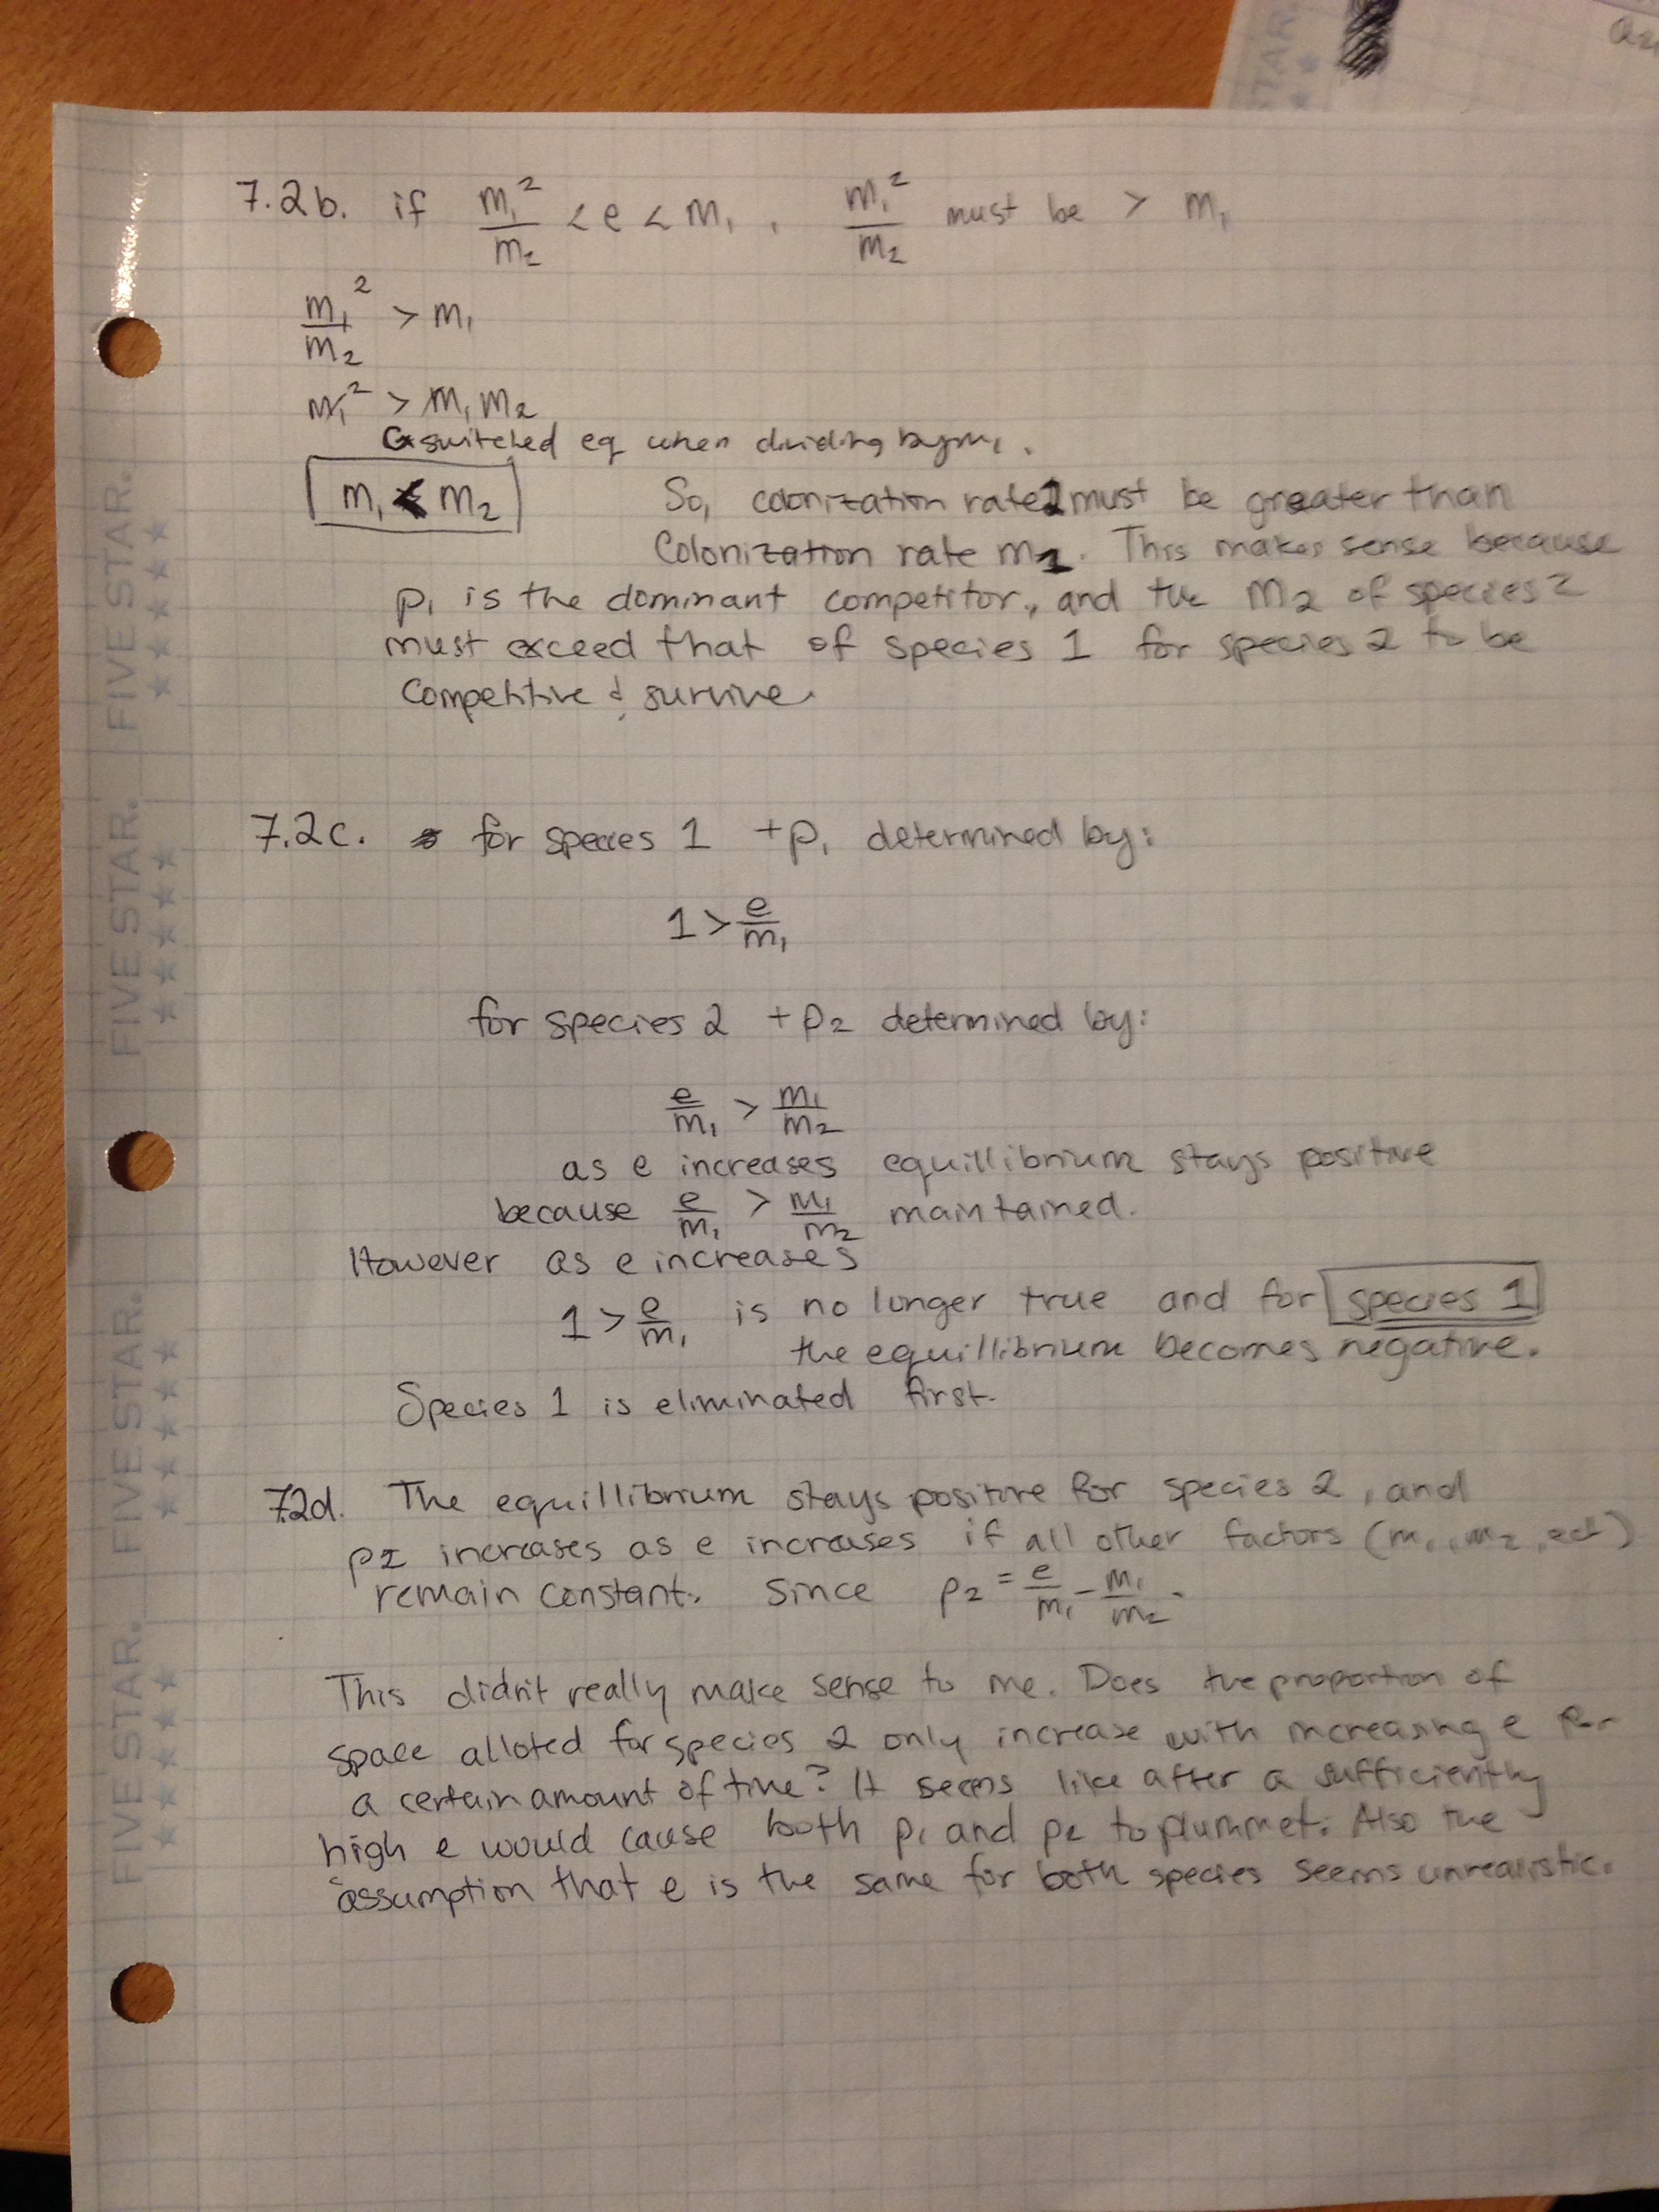 7.2b. if m₁²/m₂ < e < m₁, m₁²/m₂ must be > m₁
m₁²/m₂ > m₁
m₁² > m₁ m₂
switched eq when dividing by m₁.
m₁ < m₂
So, colonization rate 2 must be greater than
colonization rate m1. This makes sense because
p₁ is the dominant competitor, and the m₂ of species 2
must exceed that of species 1 for species 2 to be
competitive & survive.
7.2c. for species 1 +p₁ determined by:
1 > e/m₁
for species 2 +p₂ determined by:
e/m₁ > m₁/m₂
as e increases equillibrium stays positive
because e/m₁ > m₁/m₂ maintained.
However as e increases
1 > e/m₁ is no longer true and for species 1
the equillibrium becomes negative.
Species 1 is eliminated first.
7.2d. The equillibrium stays positive for species 2, and
p2 increases as e increases if all other factors (m₁, m₂, ect)
remain constant. Since p₂ = e/m₁ - m₁/m₂.
This didn't really make sense to me. Does the proportion of
space alloted for species 2 only increase with increasing e for
a certain amount of time? It seems like after a sufficiently
high e would cause both p₁ and p₂ to plummet. Also the
assumption that e is the same for both species seems unrealistic.
FIVE STAR.
FIVE STAR.
FIVE STAR.
FIVE STAR.
TAR.